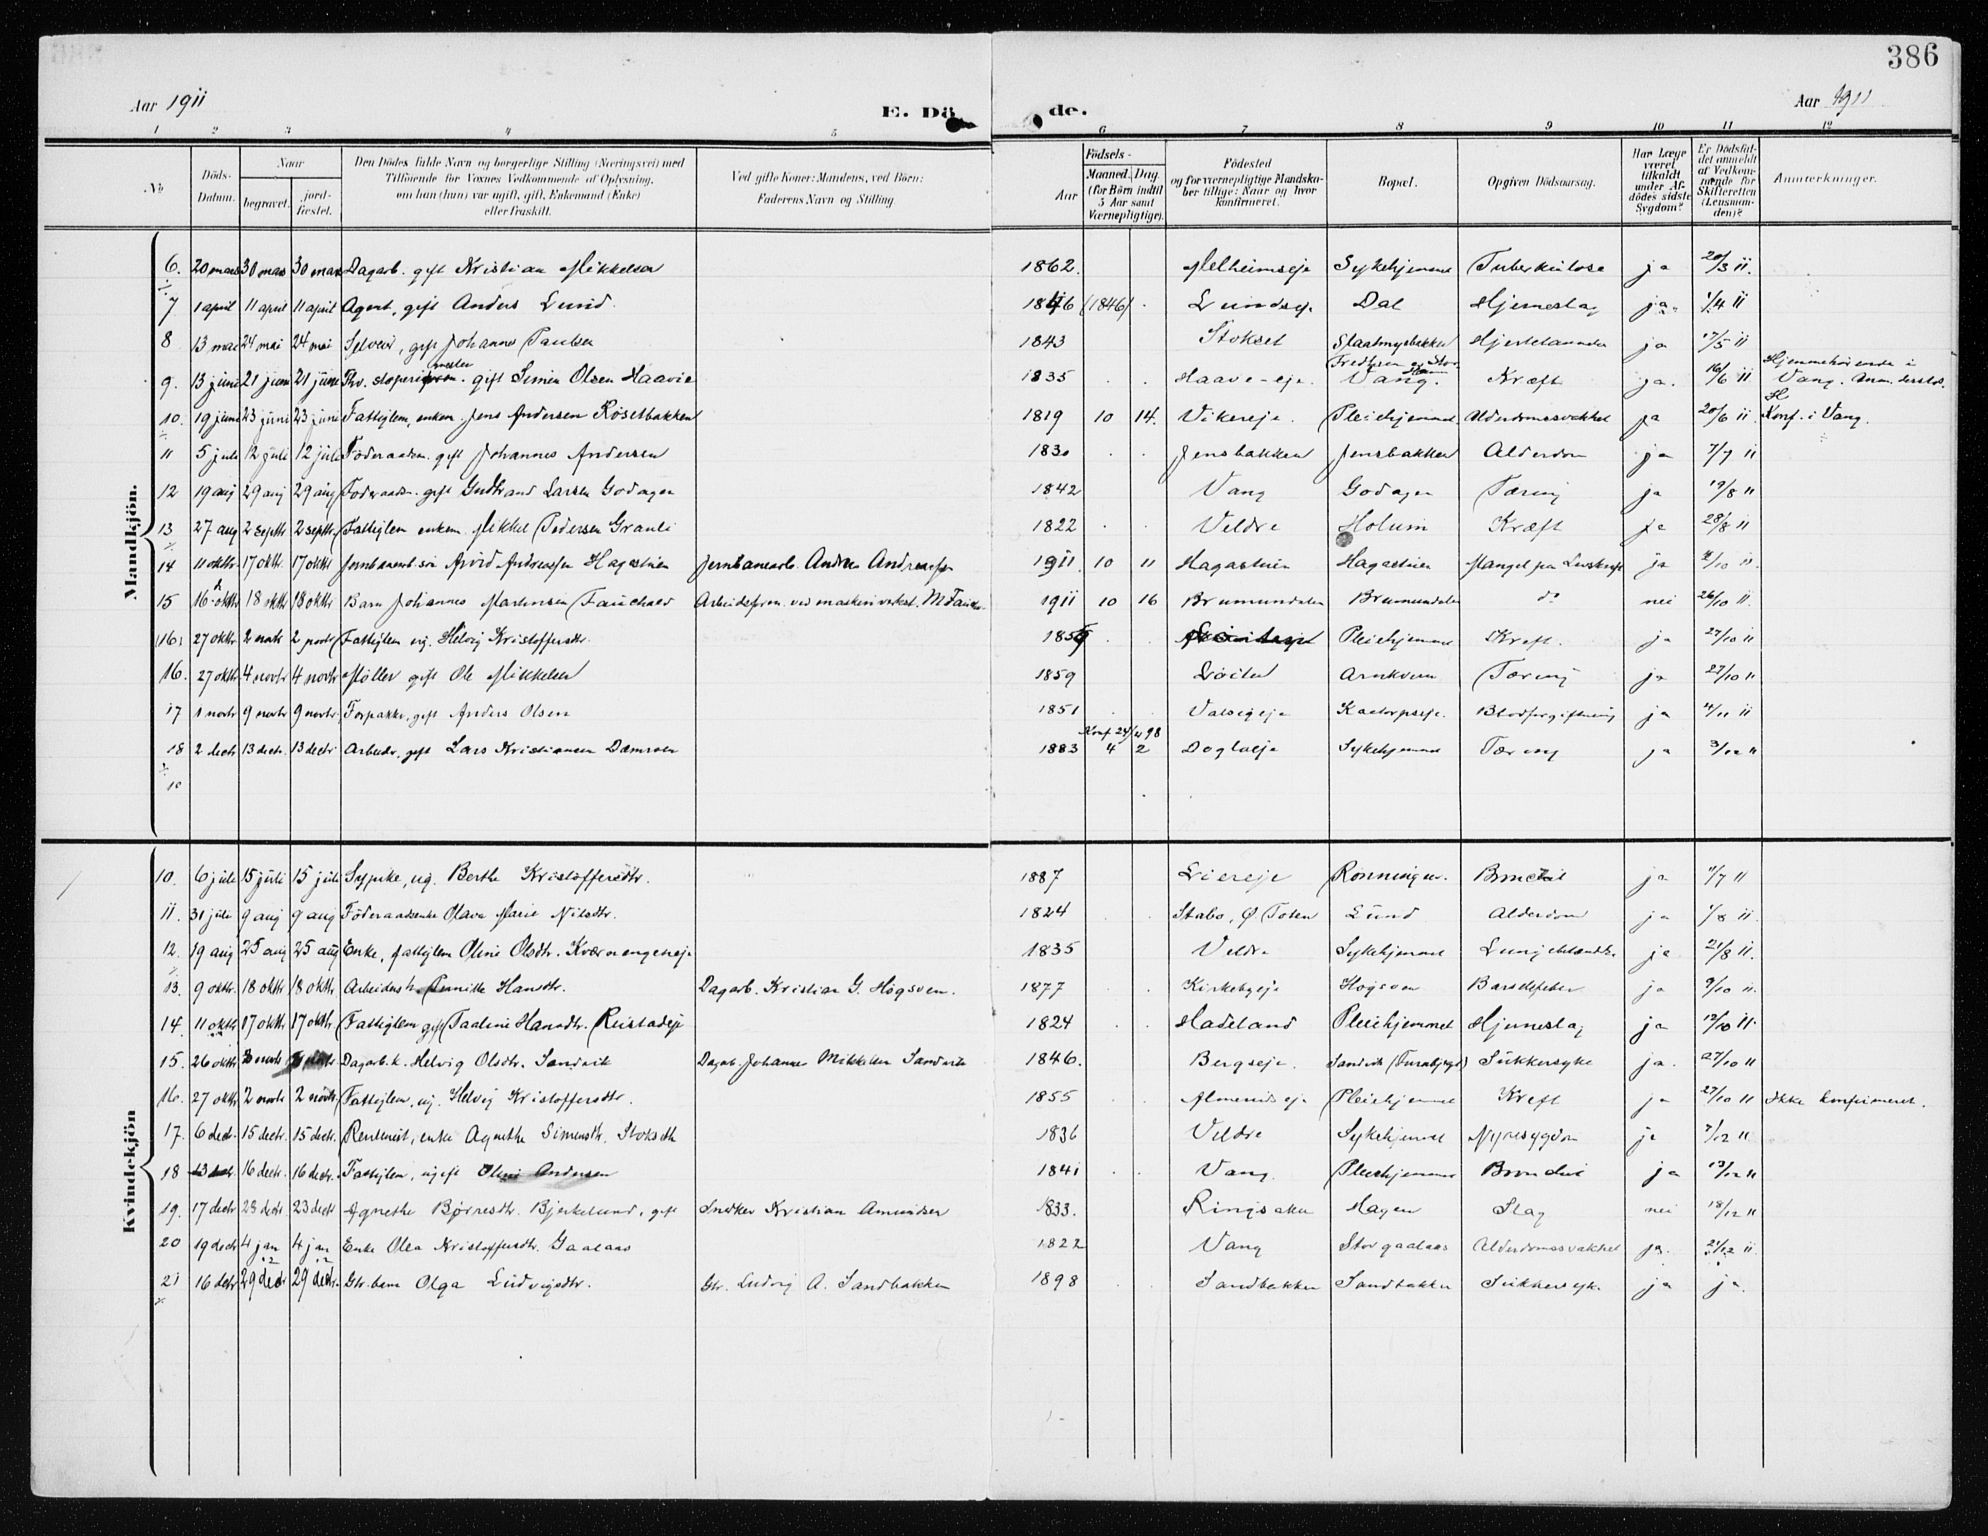 386
Aar 1911
E. Dö
de.
Aar 1911
1 2 3 4 5 6 7 8 9 10 11 12
No
Döds-Datum.
Naar
begravet.
jord-fæstet.
Den Dödes fulde Navn og borgerlige Stilling (Næringsvei) med
Tilföiende for Voxnes Vedkommende af Oplysning,
om han (hun) var ugift, gift, Enkemand (Enke)
eller fraskilt.
Ved gifte Koner: Mandens, ved Börn:
Faderens Navn og Stilling.
Födsels-
Aar
Maaned. Dag.
(for Börn indtil
5 Aar samt
Værnepligtige).
Födested
og for værnepligtige Mandska-
ber tillige: Naar og hvor
konfirmeret.
Bopæl.
Opgiven Dödsaarsag.
Har Læge
været
tilkaldt
under Af-
dödes sidste
Sygdom?
Er Dödsfal-
det anmeldt
af Vedkom-
mende for
Skifteretten
(Lensman-
den)?
Anmærkninger.
Mandkjön.
6. 20 mars 30 mars 30 mars Dagarb. gift Kristian Mikkelsen 1862. Melheimseje Sykehjemmet Tuberkulose ja 20/3 11.
7 1 april 11 april 11 april Agent, gift Anders Lund. 1846 (1846) Lundseje Dal Hjerneslag ja 1/4 11
8 13 mai 24 mai 24 mai Selveier, gift Johannes Paulsen 1843 Stokset Hjertelammelse ja 17/5 11
9. 13 juni 21 juni 21 juni mester gift Simen Olsen Haavie 1835 Haave-eje. Vang. Kræft ja. 16/6 11 Hjemmehörende i Vang.
10. 19 juni 23 juni 23 juni Fattiglem, enkem. Jens Andersen Rösetbakken 1819 10 14. Vikereje. Pleiehjemmet Alderdomssvakhet ja 20/6 11 Konf. i Vang.
11 5 juli 12 juli 12 juli Föderaadsm. gift Johannes Andersen 1830 Jensbakken Jensbakken Alderdom ja 7/7 11
12 19 aug 29 aug 29 aug Föderaadsm. gift Gudbrand Larsen Godager 1842 Vang Godager Tæring ja 19/8 11
13 27 aug 2 septbr 2 septbr. Fattiglem enkem. Mikkel Pedersen Granli 1822 Veldre Holum Kræft ja 28/8 11
14 11 oktbr. 17 oktbr. 17 oktbr Jernbanearb. sön Arvid Andreassen Hagastuen Jernbanearb. Andreas Andreassen 1911. 10 11 Hagastuen Hagastuen Mangel paa Livskraft ja 11/10 11.
15 16 oktbr 18 oktbr 18 oktbr Barn Johannes Martinsen Fauchald Arbeidsform. ved maskinverkst. M. Fauchald 1911 10 16 Brumundalen Brumundalen do nei 26/10 11.
(16) 27 oktbr 2 novbr 2 novbr Fattiglem ug. Helvig Kristoffersdtr. 1859 Pleiehjemmet Kreft. ja 27/10 11
16. 27 oktbr 4 novbr 4 novbr Möller gift Ole Mikkelsen 1859 Löiten Arnkvern Tæring ja 27/10 11
17 1 novbr 9 novbr 9 novbr. Forpakter, gift Anders Olsen 1851 Valsegeje Kaatorpseje. Blodforgiftning ja 4/11 11
18 2 decbr 13 decbr. 13 decbr Arbeider, gift Lars Kristiansen Dæmroen Konf 24/4 98 1883 4 2 Dogloeje Sykehjemmet Tæring ja 3/12 11
Kvindekjön
10. 6 juli 15 juli 15 juli Sypike, ug. Berthe Kristoffersdtr. 1887 Liereje Rönningen. ja 11/7 11
11. 31 juli 9 aug 9 aug Föderaadsenke Olava Marie Nilsdtr. 1824 Stabo, Ø. Toten Lund Alderdom ja 1/8 11.
12. 19 aug 25 aug 25 aug Enke, fattiglem Oline Olsdtr. Kværnengeneje 1835 Veldre Sykehjemmet Lungebetændelse ja 21/8 11.
13. 9 oktbr. 18 oktbr 18 oktbr Arbeidersk. Pernille Hansdtr. Dagarb. Kristian G. Högsven. 1877 Kirkebyeje Högsven Barselfeber ja 9/10 11.
14. 11 oktbr 17 oktbr 17 oktbr. Fattiglem gift Paaline Hansdtr. Reistadeje 1824 Hadeland Pleiehjemmet Hjerneslag ja 12/10 11.
15. 26 oktbr 3 novbr Dagarb. k. Helvig Olsdtr. Sandvik Dagarb. Johannes Mikkelsen Sandvik 1846. Bergseje. Sandvik (Furnesfjord) Sukkersyke ja. 27/10 11
16. 27 oktbr 2 novbr 2 novbr. Fattiglem, ug. Helvig Kristoffersdtr. 1855 Almenin eje Pleiehjemmet Kreft ja 27/10 11 Ikke konfirmeret.
17. 6 decbr. 15 decbr. 15 decbr. Rentenist, enke Agnethe Simensdtr. Stokseth 1836 Veldre Sykehjemmet Nyresygdom ja 7/12 11
18 13 decbr 16 decbr. 16 decbr. Fattiglem, ugift Oline Andersen 1841 Vang Pleiehjemmet ja 13/12 11
19. 17 decbr 23 decbr 23 decbr Agnethe Børresdtr. Bjerkelund, gift Snedker Kristian Amundsen 1833. Ringsaker Hagen Slag nei 18/12 11
20 19 decbr 4 jan 12 4 jan 12 Enke Olea Kristoffersdtr. Gaalaas 1822 Vang Storgaalaas Alderdomssvakhet ja. 21/12 11.
21 16 decbr 29 decbr 29 decbr. Gbr. barn Olga Ludvigsdtr. Gbr. Ludvig A. Sandbakken 1898 Sandbakken Sandbakken Sukkersyk. ja ja.